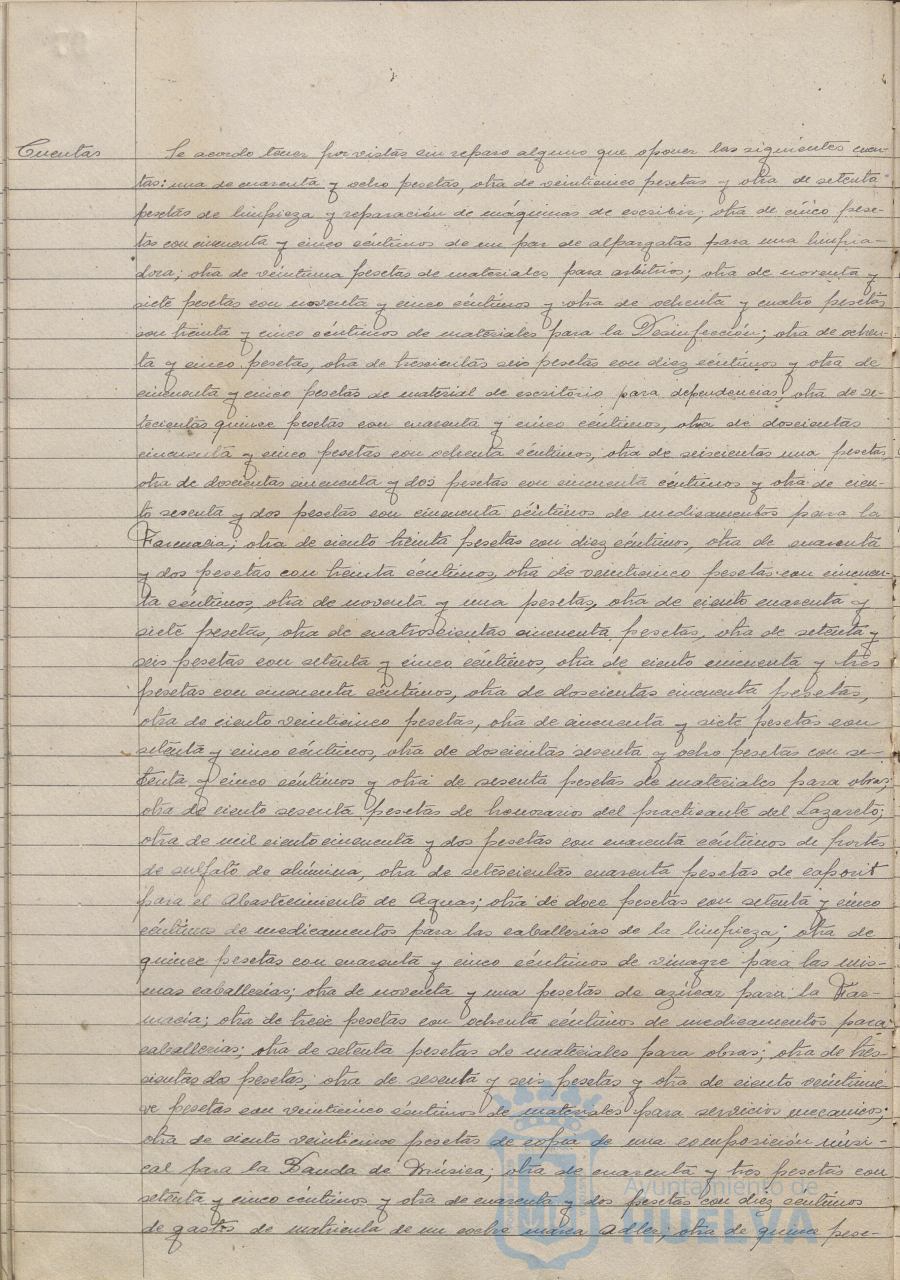 Cuentas
Se acordo tener por vistas sin reparo alguno que oponer las siguientes cuen-
tas: una de cuarenta y ocho pesetas, otra de veinticinco pesetas y otra de setenta
pesetas de limpieza y reparación de máquinas de escribir; otra de cinco pese-
tas con cincuenta y cinco céntimos de un par de alpargatas para una limpia-
dora; otra de veintiuna pesetas de materiales para arbitrios; otra de noventa y
siete pesetas con noventa y cinco céntimos y otra de ochenta y cuatro pesetas
con treinta y cinco céntimos de materiales para la Desinfección; otra de ochen-
ta y cinco pesetas, otra de trescientas seis pesetas con diez céntimos y otra de
cincuenta y cinco pesetas de material de escritorio para dependencias; otra de se-
tecientas quince pesetas con cuarenta y cinco céntimos, otra de doscientas
cincuenta y cinco pesetas con ochenta céntimos, otra de seiscientas una pesetas,
otra de doscientas cincuenta y dos pesetas con cincuenta céntimos y otra de cien-
to sesenta y dos pesetas con cincuenta céntimos de medicamentos para la
Farmacia; otra de ciento treinta pesetas con diez céntimos, otra de cuarenta
y dos pesetas con treinta céntimos, otra de veinticinco pesetas con cincuen-
ta céntimos, otra de noventa y una pesetas, otra de ciento cuarenta y
siete pesetas, otra de cuatroscientas cincuenta pesetas, otra de setenta y
seis pesetas con setenta y cinco céntimos, otra de ciento cincuenta y tres
pesetas con cincuenta céntimos, otra de doscientas cincuenta pesetas,
otra de ciento veinticinco pesetas, otra de cincuenta y siete pesetas con
setenta y cinco céntimos, otra de doscientas sesenta y ocho pesetas con se-
tenta y cinco céntimos y otra de sesenta pesetas de materiales para obras;
otra de ciento sesenta pesetas de honorario del practicante del Lazareto;
otra de mil ciento cincuenta y dos pesetas con cuarenta céntimos de portes
de sulfato de alúmina, otra de setescientas cuarenta pesetas de caporit
para el Abastecimiento de Aguas; otra de doce pesetas con setenta y cinco
céntimos de medicamentos para las caballerias de la limpieza; otra de
quince pesetas con cuarenta y cinco céntimos de vinagre para las mis-
mas caballerias; otra de noventa y una pesetas de azúcar para la Far-
macia; otra de trece pesetas con ochenta céntimos de medicamentos para
caballerias; otra de setenta pesetas de materiales para obras; otra de tres-
cientas dos pesetas, otra de sesenta y seis pesetas y otra de ciento veintinue-
ve pesetas con veinticinco céntimos de materiales para servicios mecanicos;
otra de ciento veinticinco pesetas de copia de una composición músi-
cal para la Banda de Música; otra de cuarenta y tres pesetas con
setenta y cinco céntimos y otra de cuarenta y dos pesetas con diez céntimos
de gastos de matricula de un coche marca Adler, otra de quince pese-
Ayuntamiento de
HUELVA